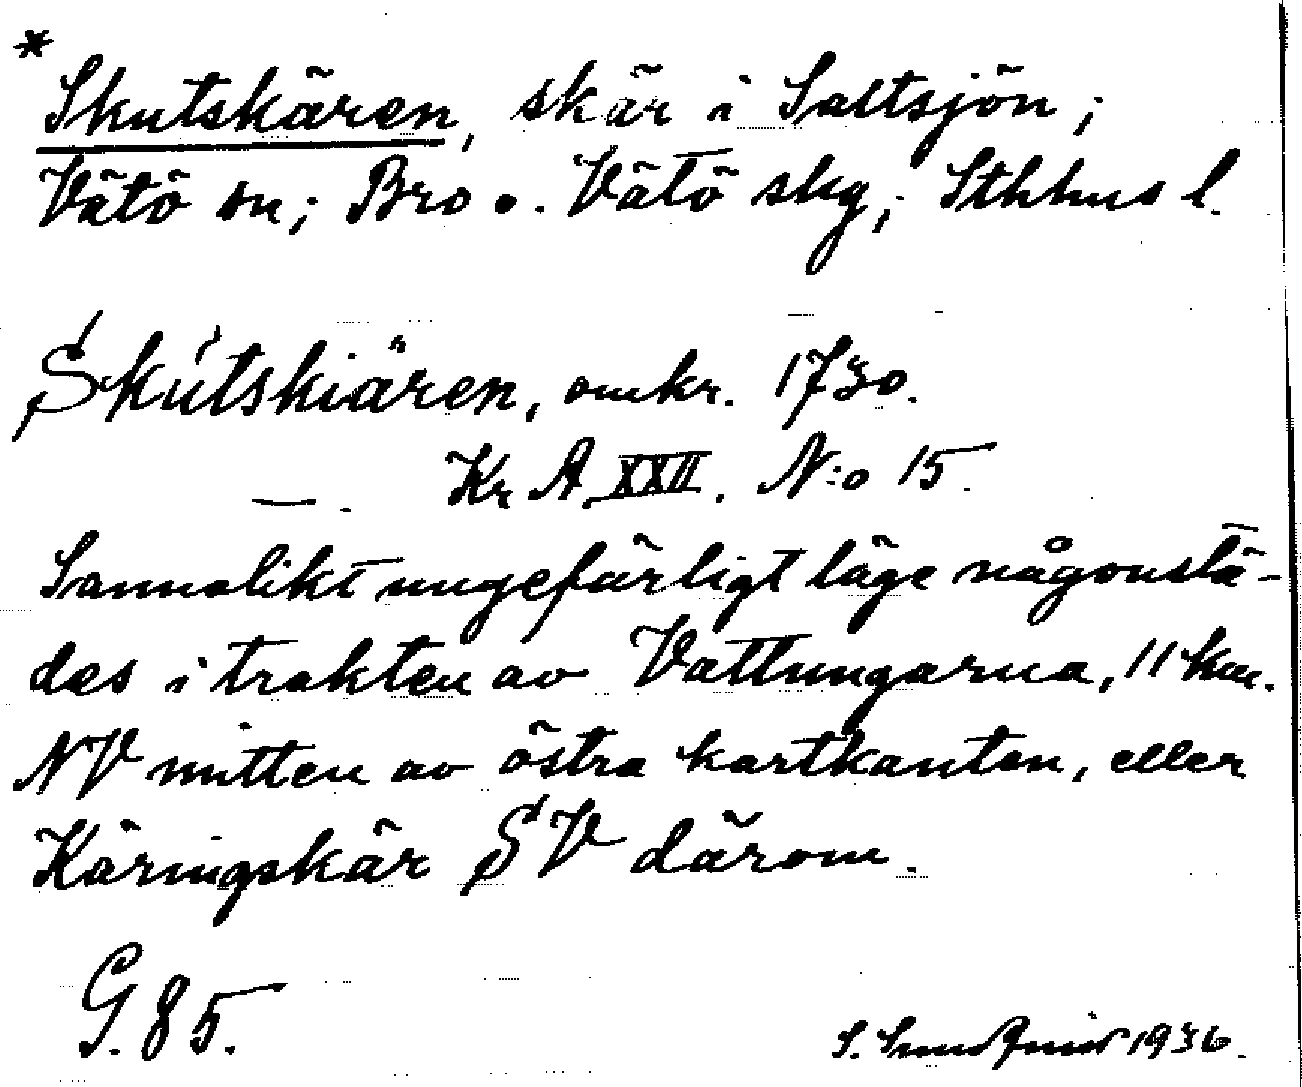 * Skutskären, skär i Saltsjön;
Vätö sn; Bro o. Vätö skg; Sthhus l.
Skútskiären, omkr. 1730.
— . Kr A. XXII. N:o 15.
Sannolikt ungefärligt läge någonstä-
des i trakten av Vattungarna, 11 km.
NV mitten av östra kartkanten, eller
Käringskär SV därom.
G. 85.
S. 1936.